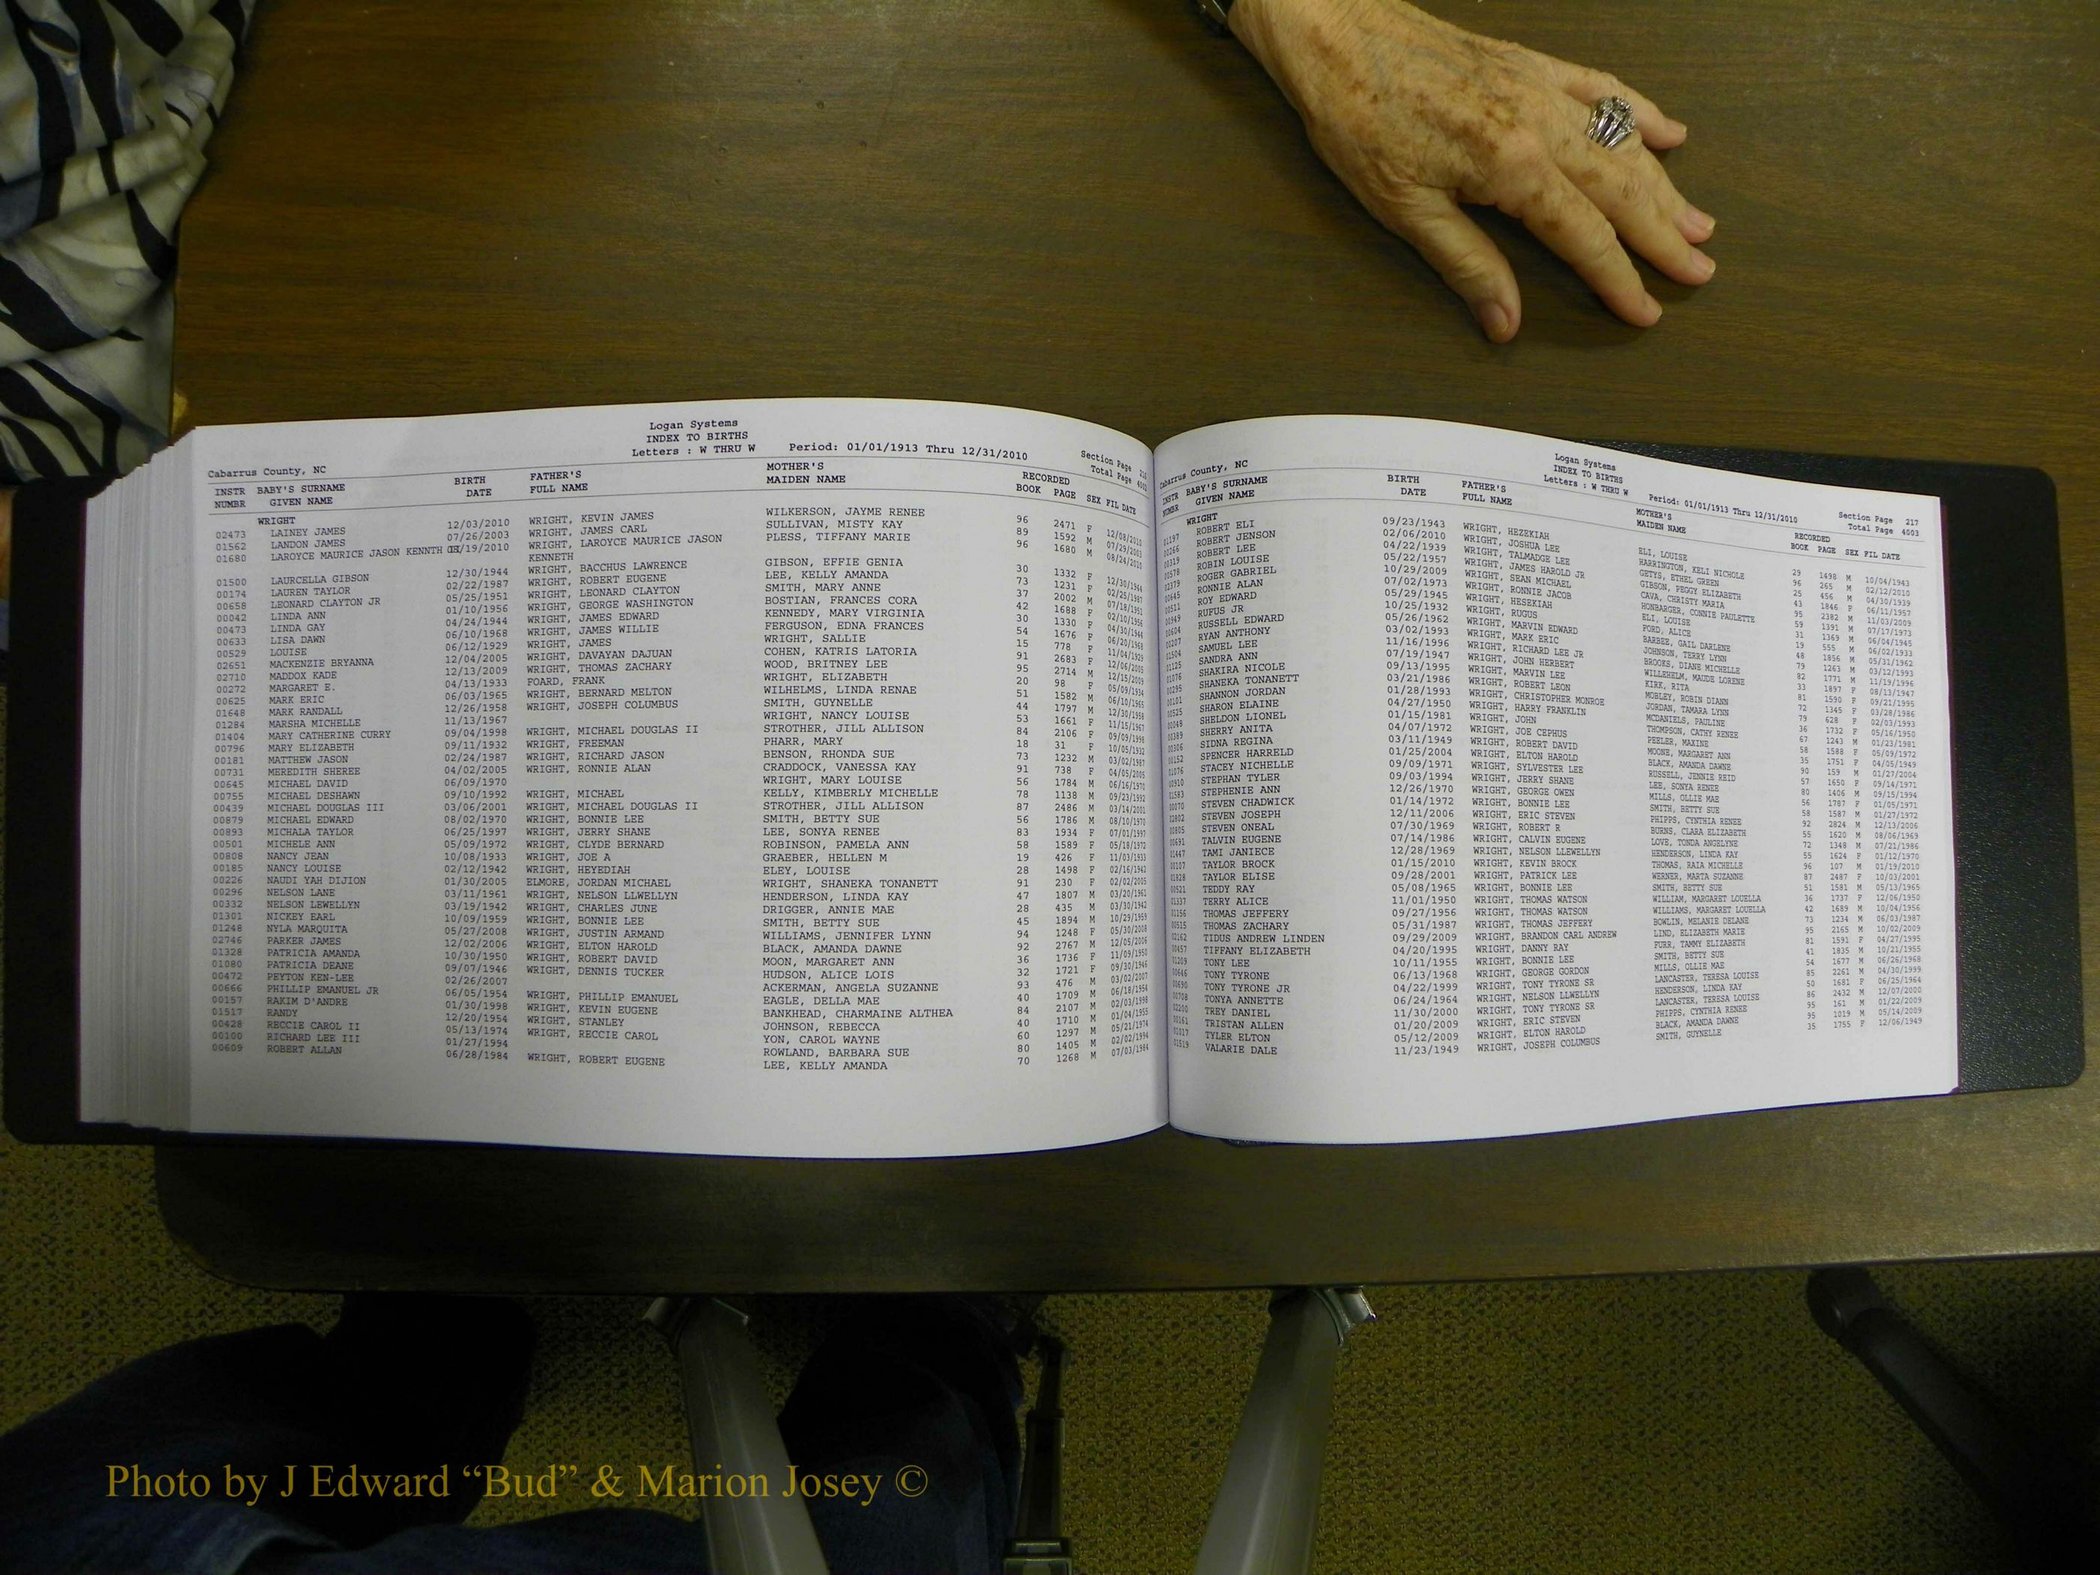 Logan Systems
INDEX TO BIRTHS
Letters : W THRU W Period: 01/01/1913 Thru 12/31/2010
Section Page 216
Total Page 4002
Cabarrus County, NC
INSTR BABY'S SURNAME BIRTH FATHER'S MOTHER'S RECORDED
NUMBR GIVEN NAME DATE FULL NAME MAIDEN NAME BOOK PAGE SEX FIL DATE
WRIGHT
02473 LAINEY JAMES 12/03/2010 WRIGHT, KEVIN JAMES WILKERSON, JAYME RENEE 96 2471 F 12/08/2010
01562 LANDON JAMES 07/26/2003 WRIGHT, JAMES CARL SULLIVAN, MISTY KAY 89 1592 M 07/29/2003
01680 LAROYCE MAURICE JASON KENNTH 08/19/2010 WRIGHT, LAROYCE MAURICE JASON PLESS, TIFFANY MARIE 96 1680 M 08/24/2010
KENNETH
01500 LAURCELLA GIBSON 12/30/1944 WRIGHT, BACCHUS LAWRENCE GIBSON, EFFIE GENIA 30 1332 F 12/30/1944
00174 LAUREN TAYLOR 02/22/1987 WRIGHT, ROBERT EUGENE LEE, KELLY AMANDA 73 1231 F 02/25/1987
00658 LEONARD CLAYTON JR 05/25/1951 WRIGHT, LEONARD CLAYTON SMITH, MARY ANNE 37 2002 M 07/18/1951
00042 LINDA ANN 01/10/1956 WRIGHT, GEORGE WASHINGTON BOSTIAN, FRANCES CORA 42 1688 F 02/10/1956
00473 LINDA GAY 04/24/1944 WRIGHT, JAMES EDWARD KENNEDY, MARY VIRGINIA 30 1330 F 04/30/1944
00633 LISA DAWN 06/10/1968 WRIGHT, JAMES WILLIE FERGUSON, EDNA FRANCES 54 1676 F 06/20/1968
00529 LOUISE 06/12/1929 WRIGHT, JAMES WRIGHT, SALLIE 15 778 F 11/04/1929
02651 MACKENZIE BRYANNA 12/04/2005 WRIGHT, DAVAYAN DAJUAN COHEN, KATRIS LATORIA 91 2683 F 12/06/2005
02710 MADDOX KADE 12/13/2009 WRIGHT, THOMAS ZACHARY WOOD, BRITNEY LEE 95 2714 M 12/15/2009
00272 MARGARET E. 04/13/1933 FOARD, FRANK WRIGHT, ELIZABETH 20 98 F 05/09/1934
00625 MARK ERIC 06/03/1965 WRIGHT, BERNARD MELTON WILHELMS, LINDA RENAE 51 1582 M 06/10/1965
01648 MARK RANDALL 12/26/1958 WRIGHT, JOSEPH COLUMBUS SMITH, GUYNELLE 44 1797 M 12/30/1958
01284 MARSHA MICHELLE 11/13/1967 WRIGHT, NANCY LOUISE 53 1661 F 11/15/1967
01404 MARY CATHERINE CURRY 09/04/1998 WRIGHT, MICHAEL DOUGLAS II STROTHER, JILL ALLISON 84 2106 F 09/09/1998
00796 MARY ELIZABETH 09/11/1932 WRIGHT, FREEMAN PHARR, MARY 18 31 F 10/05/1932
00181 MATTHEW JASON 02/24/1987 WRIGHT, RICHARD JASON BENSON, RHONDA SUE 73 1232 M 03/02/1987
00731 MEREDITH SHEREE 04/02/2005 WRIGHT, RONNIE ALAN CRADDOCK, VANESSA KAY 91 738 F 04/05/2005
00645 MICHAEL DAVID 06/09/1970 WRIGHT, MARY LOUISE 56 1784 M 06/16/1970
00755 MICHAEL DESHAWN 09/10/1992 WRIGHT, MICHAEL KELLY, KIMBERLY MICHELLE 78 1138 M 09/23/1992
00439 MICHAEL DOUGLAS III 03/06/2001 WRIGHT, MICHAEL DOUGLAS II STROTHER, JILL ALLISON 87 2486 M 03/14/2001
00879 MICHAEL EDWARD 08/02/1970 WRIGHT, BONNIE LEE SMITH, BETTY SUE 56 1786 M 08/10/1970
00893 MICHALA TAYLOR 06/25/1997 WRIGHT, JERRY SHANE LEE, SONYA RENEE 83 1934 F 07/01/1997
00501 MICHELE ANN 05/09/1972 WRIGHT, CLYDE BERNARD ROBINSON, PAMELA ANN 58 1589 F 05/18/1972
00808 NANCY JEAN 10/08/1933 WRIGHT, JOE A GRAEBER, HELLEN M 19 426 F 11/03/1933
00185 NANCY LOUISE 02/12/1942 WRIGHT, HEYEDIAH ELEY, LOUISE 28 1498 F 02/16/1942
00226 NAUDI YAH DIJION 01/30/2005 ELMORE, JORDAN MICHAEL WRIGHT, SHANEKA TONANETT 91 230 F 02/02/2005
00296 NELSON LANE 03/11/1961 WRIGHT, NELSON LLWELLYN HENDERSON, LINDA KAY 47 1807 M 03/20/1961
00332 NELSON LEWELLYN 03/19/1942 WRIGHT, CHARLES JUNE DRIGGER, ANNIE MAE 28 435 M 03/30/1942
01301 NICKEY EARL 10/09/1959 WRIGHT, BONNIE LEE SMITH, BETTY SUE 45 1894 M 10/29/1959
01248 NYLA MARQUITA 05/27/2008 WRIGHT, JUSTIN ARMAND WILLIAMS, JENNIFER LYNN 94 1248 F 05/30/2008
02746 PARKER JAMES 12/02/2006 WRIGHT, ELTON HAROLD BLACK, AMANDA DAWNE 92 2767 M 12/05/2006
01328 PATRICIA AMANDA 10/30/1950 WRIGHT, ROBERT DAVID MOON, MARGARET ANN 36 1736 F 11/09/1950
01080 PATRICIA DEANE 09/07/1946 WRIGHT, DENNIS TUCKER HUDSON, ALICE LOIS 32 1721 F 09/30/1946
00472 PEYTON KEN-LEE 02/26/2007 ACKERMAN, ANGELA SUZANNE 93 476 M 03/02/2007
00666 PHILLIP EMANUEL JR 06/05/1954 WRIGHT, PHILLIP EMANUEL EAGLE, DELLA MAE 40 1709 M 06/18/1954
00157 RAKIM D'ANDRE 01/30/1998 WRIGHT, KEVIN EUGENE BANKHEAD, CHARMAINE ALTHEA 84 2107 M 02/03/1998
01517 RANDY 12/20/1954 WRIGHT, STANLEY JOHNSON, REBECCA 40 1710 M 01/04/1955
00428 RECCIE CAROL II 05/13/1974 WRIGHT, RECCIE CAROL YON, CAROL WAYNE 60 1297 M 05/21/1974
00100 RICHARD LEE III 01/27/1994 ROWLAND, BARBARA SUE 80 1405 M 02/02/1994
00609 ROBERT ALLAN 06/28/1984 WRIGHT, ROBERT EUGENE LEE, KELLY AMANDA 70 1268 M 07/03/1984
Logan Systems
INDEX TO BIRTHS
Letters : W THRU W Period: 01/01/1913 Thru 12/31/2010
Section Page 217
Total Page 4003
Cabarrus County, NC
INSTR BABY'S SURNAME BIRTH FATHER'S MOTHER'S RECORDED
NUMBR GIVEN NAME DATE FULL NAME MAIDEN NAME BOOK PAGE SEX FIL DATE
WRIGHT
01197 ROBERT ELI 09/23/1943 WRIGHT, HEZEKIAH ELI, LOUISE 29 1498 M 10/04/1943
00266 ROBERT JENSON 02/06/2010 WRIGHT, JOSHUA LEE HARRINGTON, KELI NICHOLE 96 265 M 02/12/2010
00319 ROBERT LEE 04/22/1939 WRIGHT, TALMADGE LEE GETYS, ETHEL GREEN 25 456 M 04/30/1939
00578 ROBIN LOUISE 05/22/1957 WRIGHT, JAMES HAROLD JR GIBSON, PEGGY ELIZABETH 43 1846 F 06/11/1957
02379 ROGER GABRIEL 10/29/2009 WRIGHT, SEAN MICHAEL CAVA, CHRISTY MARIA 95 2382 M 11/03/2009
00645 RONNIE ALAN 07/02/1973 WRIGHT, RONNIE JACOB HONBARGER, CONNIE PAULETTE 59 1391 M 07/17/1973
00511 ROY EDWARD 05/29/1945 WRIGHT, HESEKIAH ELI, LOUISE 31 1369 M 06/04/1945
00949 RUFUS JR 10/25/1932 WRIGHT, RUGUS FORD, ALICE 19 555 M 06/02/1933
00604 RUSSELL EDWARD 05/26/1962 WRIGHT, MARVIN EDWARD BARBEE, GAIL DARLENE 48 1856 M 05/31/1962
00207 RYAN ANTHONY 03/02/1993 WRIGHT, MARK ERIC JOHNSON, TERRY LYNN 79 1263 M 03/12/1993
01504 SAMUEL LEE 11/16/1996 WRIGHT, RICHARD LEE JR BROOKS, DIANE MICHELLE 82 1771 M 11/19/1996
01125 SANDRA ANN 07/19/1947 WRIGHT, JOHN HERBERT WILLEHELM, MAUDE LORENE 33 1897 F 08/13/1947
01076 SHAKIRA NICOLE 09/13/1995 WRIGHT, MARVIN LEE KIRK, RITA 81 1590 F 09/21/1995
00295 SHANEKA TONANETT 03/21/1986 WRIGHT, ROBERT LEON MOBLEY, ROBIN DIANN 72 1345 F 03/28/1986
00101 SHANNON JORDAN 01/28/1993 WRIGHT, CHRISTOPHER MONROE JORDAN, TAMARA LYNN 79 628 F 02/03/1993
00525 SHARON ELAINE 04/27/1950 WRIGHT, HARRY FRANKLIN MCDANIELS, PAULINE 36 1732 F 05/16/1950
00049 SHELDON LIONEL 01/15/1981 WRIGHT, JOHN THOMPSON, CATHY RENEE 67 1243 M 01/23/1981
00389 SHERRY ANITA 04/07/1972 WRIGHT, JOE CEPHUS PEELER, MAXINE 58 1588 F 05/09/1972
00306 SIDNA REGINA 03/11/1949 WRIGHT, ROBERT DAVID MOONE, MARGARET ANN 35 1751 F 04/05/1949
00152 SPENCER HARRELD 01/25/2004 WRIGHT, ELTON HAROLD BLACK, AMANDA DAWNE 90 159 M 01/27/2004
01076 STACEY NICHELLE 09/09/1971 WRIGHT, SYLVESTER LEE RUSSELL, JENNIE REID 57 1650 F 09/14/1971
00910 STEPHAN TYLER 09/03/1994 WRIGHT, JERRY SHANE LEE, SONYA RENEE 80 1406 M 09/15/1994
01583 STEPHENIE ANN 12/26/1970 WRIGHT, GEORGE OWEN MILLS, OLLIE MAE 56 1787 F 01/05/1971
00070 STEVEN CHADWICK 01/14/1972 WRIGHT, BONNIE LEE SMITH, BETTY SUE 58 1587 M 01/27/1972
02802 STEVEN JOSEPH 12/11/2006 WRIGHT, ERIC STEVEN PHIPPS, CYNTHIA RENEE 92 2824 M 12/13/2006
00805 STEVEN ONEAL 07/30/1969 WRIGHT, ROBERT R BURNS, CLARA ELIZABETH 55 1620 M 08/06/1969
00691 TALVIN EUGENE 07/14/1986 WRIGHT, CALVIN EUGENE LOVE, TONDA ANGELYNE 72 1348 M 07/21/1986
01447 TAMI JANIECE 12/28/1969 WRIGHT, NELSON LLEWELLYN HENDERSON, LINDA KAY 55 1624 F 01/12/1970
00107 TAYLOR BROCK 01/15/2010 WRIGHT, KEVIN BROCK THOMAS, RAIA MICHELLE 96 107 M 01/19/2010
01828 TAYLOR ELISE 09/28/2001 WRIGHT, PATRICK LEE WERNER, MARTA SUZANNE 87 2487 F 10/03/2001
00521 TEDDY RAY 05/08/1965 WRIGHT, BONNIE LEE SMITH, BETTY SUE 51 1581 M 05/13/1965
01337 TERRY ALICE 11/01/1950 WRIGHT, THOMAS WATSON WILLIAM, MARGARET LOUELLA 36 1737 F 12/06/1950
01156 THOMAS JEFFERY 09/27/1956 WRIGHT, THOMAS WATSON WILLIAMS, MARGARET LOUELLA 42 1689 M 10/04/1956
00515 THOMAS ZACHARY 05/31/1987 WRIGHT, THOMAS JEFFERY BOWLIN, MELANIE DELANE 73 1234 M 06/03/1987
02162 TIDUS ANDREW LINDEN 09/29/2009 WRIGHT, BRANDON CARL ANDREW LIND, ELIZABETH MARIE 95 2165 M 10/02/2009
00457 TIFFANY ELIZABETH 04/20/1995 WRIGHT, DANNY RAY FURR, TAMMY ELIZABETH 81 1591 F 04/27/1995
01209 TONY LEE 10/11/1955 WRIGHT, BONNIE LEE SMITH, BETTY SUE 41 1835 M 10/21/1955
00646 TONY TYRONE 06/13/1968 WRIGHT, GEORGE GORDON MILLS, OLLIE MAE 54 1677 M 06/26/1968
00690 TONY TYRONE JR 04/22/1999 WRIGHT, TONY TYRONE SR LANCASTER, TERESA LOUISE 85 2261 M 04/30/1999
00708 TONYA ANNETTE 06/24/1964 WRIGHT, NELSON LLWELLYN HENDERSON, LINDA KAY 50 1681 F 06/25/1964
02200 TREY DANIEL 11/30/2000 WRIGHT, TONY TYRONE SR LANCASTER, TERESA LOUISE 86 2432 M 12/07/2000
00161 TRISTAN ALLEN 01/20/2009 WRIGHT, ERIC STEVEN PHIPPS, CYNTHIA RENEE 95 161 M 01/22/2009
01017 TYLER ELTON 05/12/2009 WRIGHT, ELTON HAROLD BLACK, AMANDA DAWNE 95 1019 M 05/14/2009
01519 VALARIE DALE 11/23/1949 WRIGHT, JOSEPH COLUMBUS SMITH, GUYNELLE 35 1755 F 12/06/1949
Photo by J Edward “Bud” & Marion Josey ©